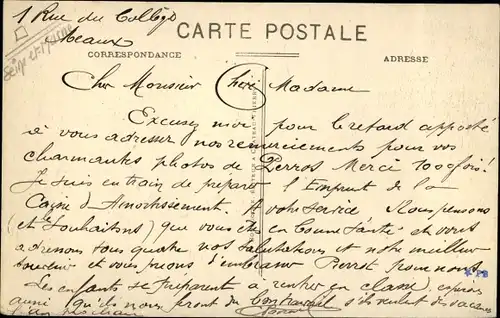 1 Rue du Collège
Meaux
CARTE POSTALE
CORRESPONDANCE
ADRESSE
Seine et Marne
Cher Monsieur Chère Madame
Excusez moi pour le retard apporté
à vous adresser nos remerciements pour vos
charmantes photos de Perros Merci 1000 fois!
Je suis en train de préparer l'Emprunt de la
Caisse d'Amortissement. A votre service Nous pensons
(et Souhaitons) que vous êtes en bonne Santé et vous
adressons tous quatre nos salutations et notre meilleur
et vous prions d'embrasser Pierrot pour nous
Les enfants se préparent à rentrer en classe, espérons
aussi qu'ils nous feront du bon travail s'ils veulent des vacances
l'an prochain